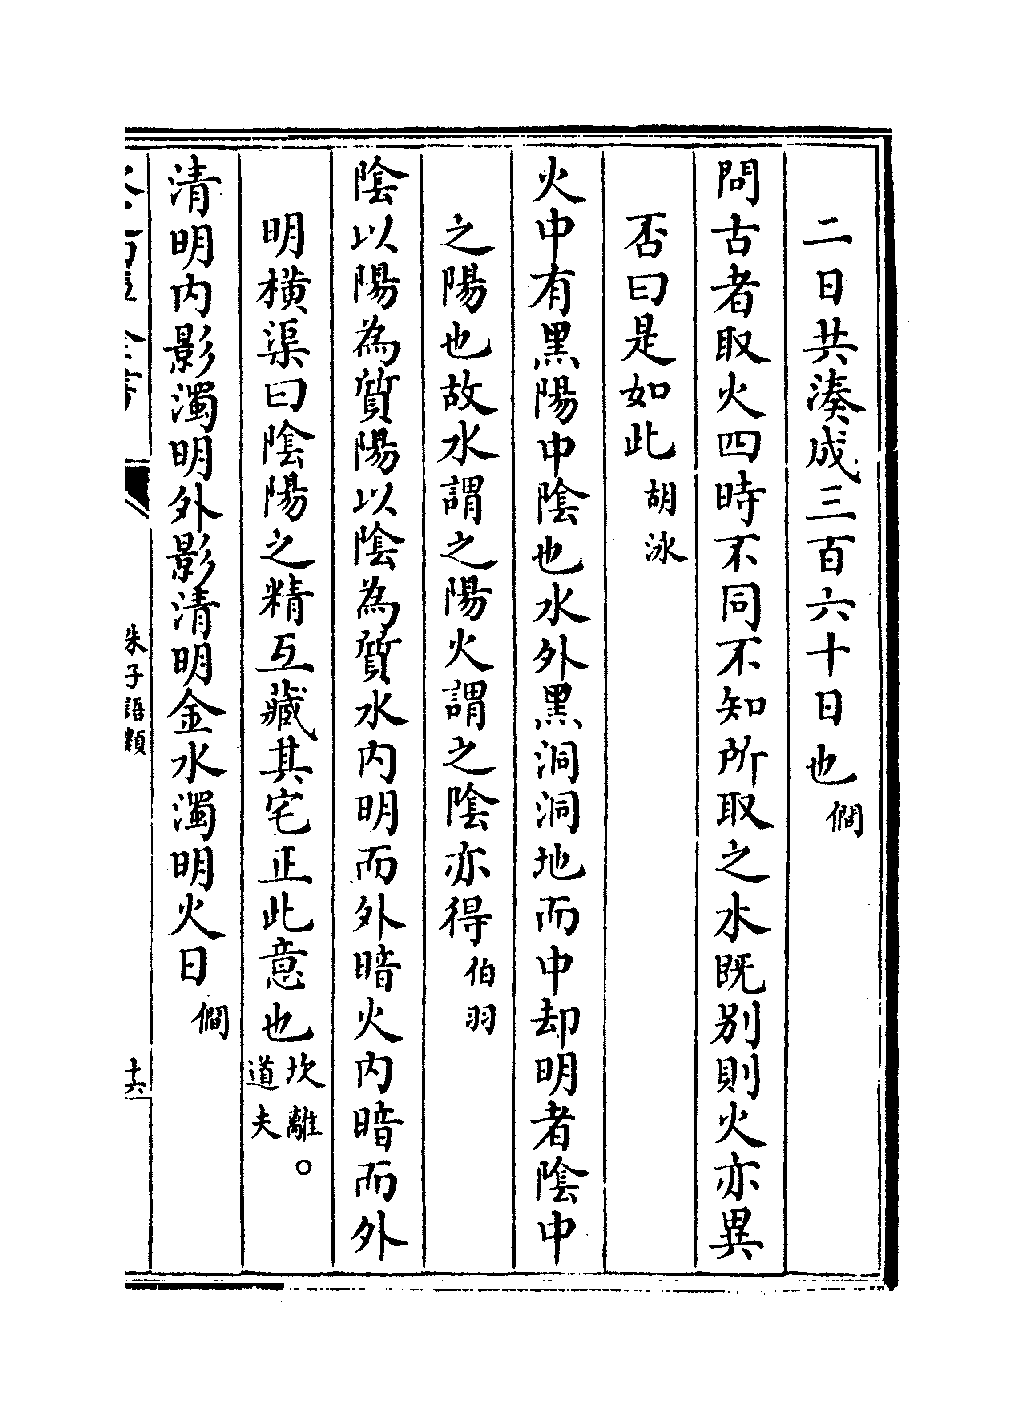 二日共湊成三百六十日也 僩
問古者取火四時不同不知所取之水既别則火亦異
否曰是如此 胡泳
火中有黒陽中陰也水外黒洞洞地而中却明者陰中
之陽也故水謂之陽火謂之陰亦得 伯羽
陰以陽為質陽以陰為質水内明而外暗火内暗而外
明横渠曰陰陽之精互藏其宅正此意也 坎離。道夫
清明内影濁明外影清明金水濁明火日 僩
朱子語類
十六